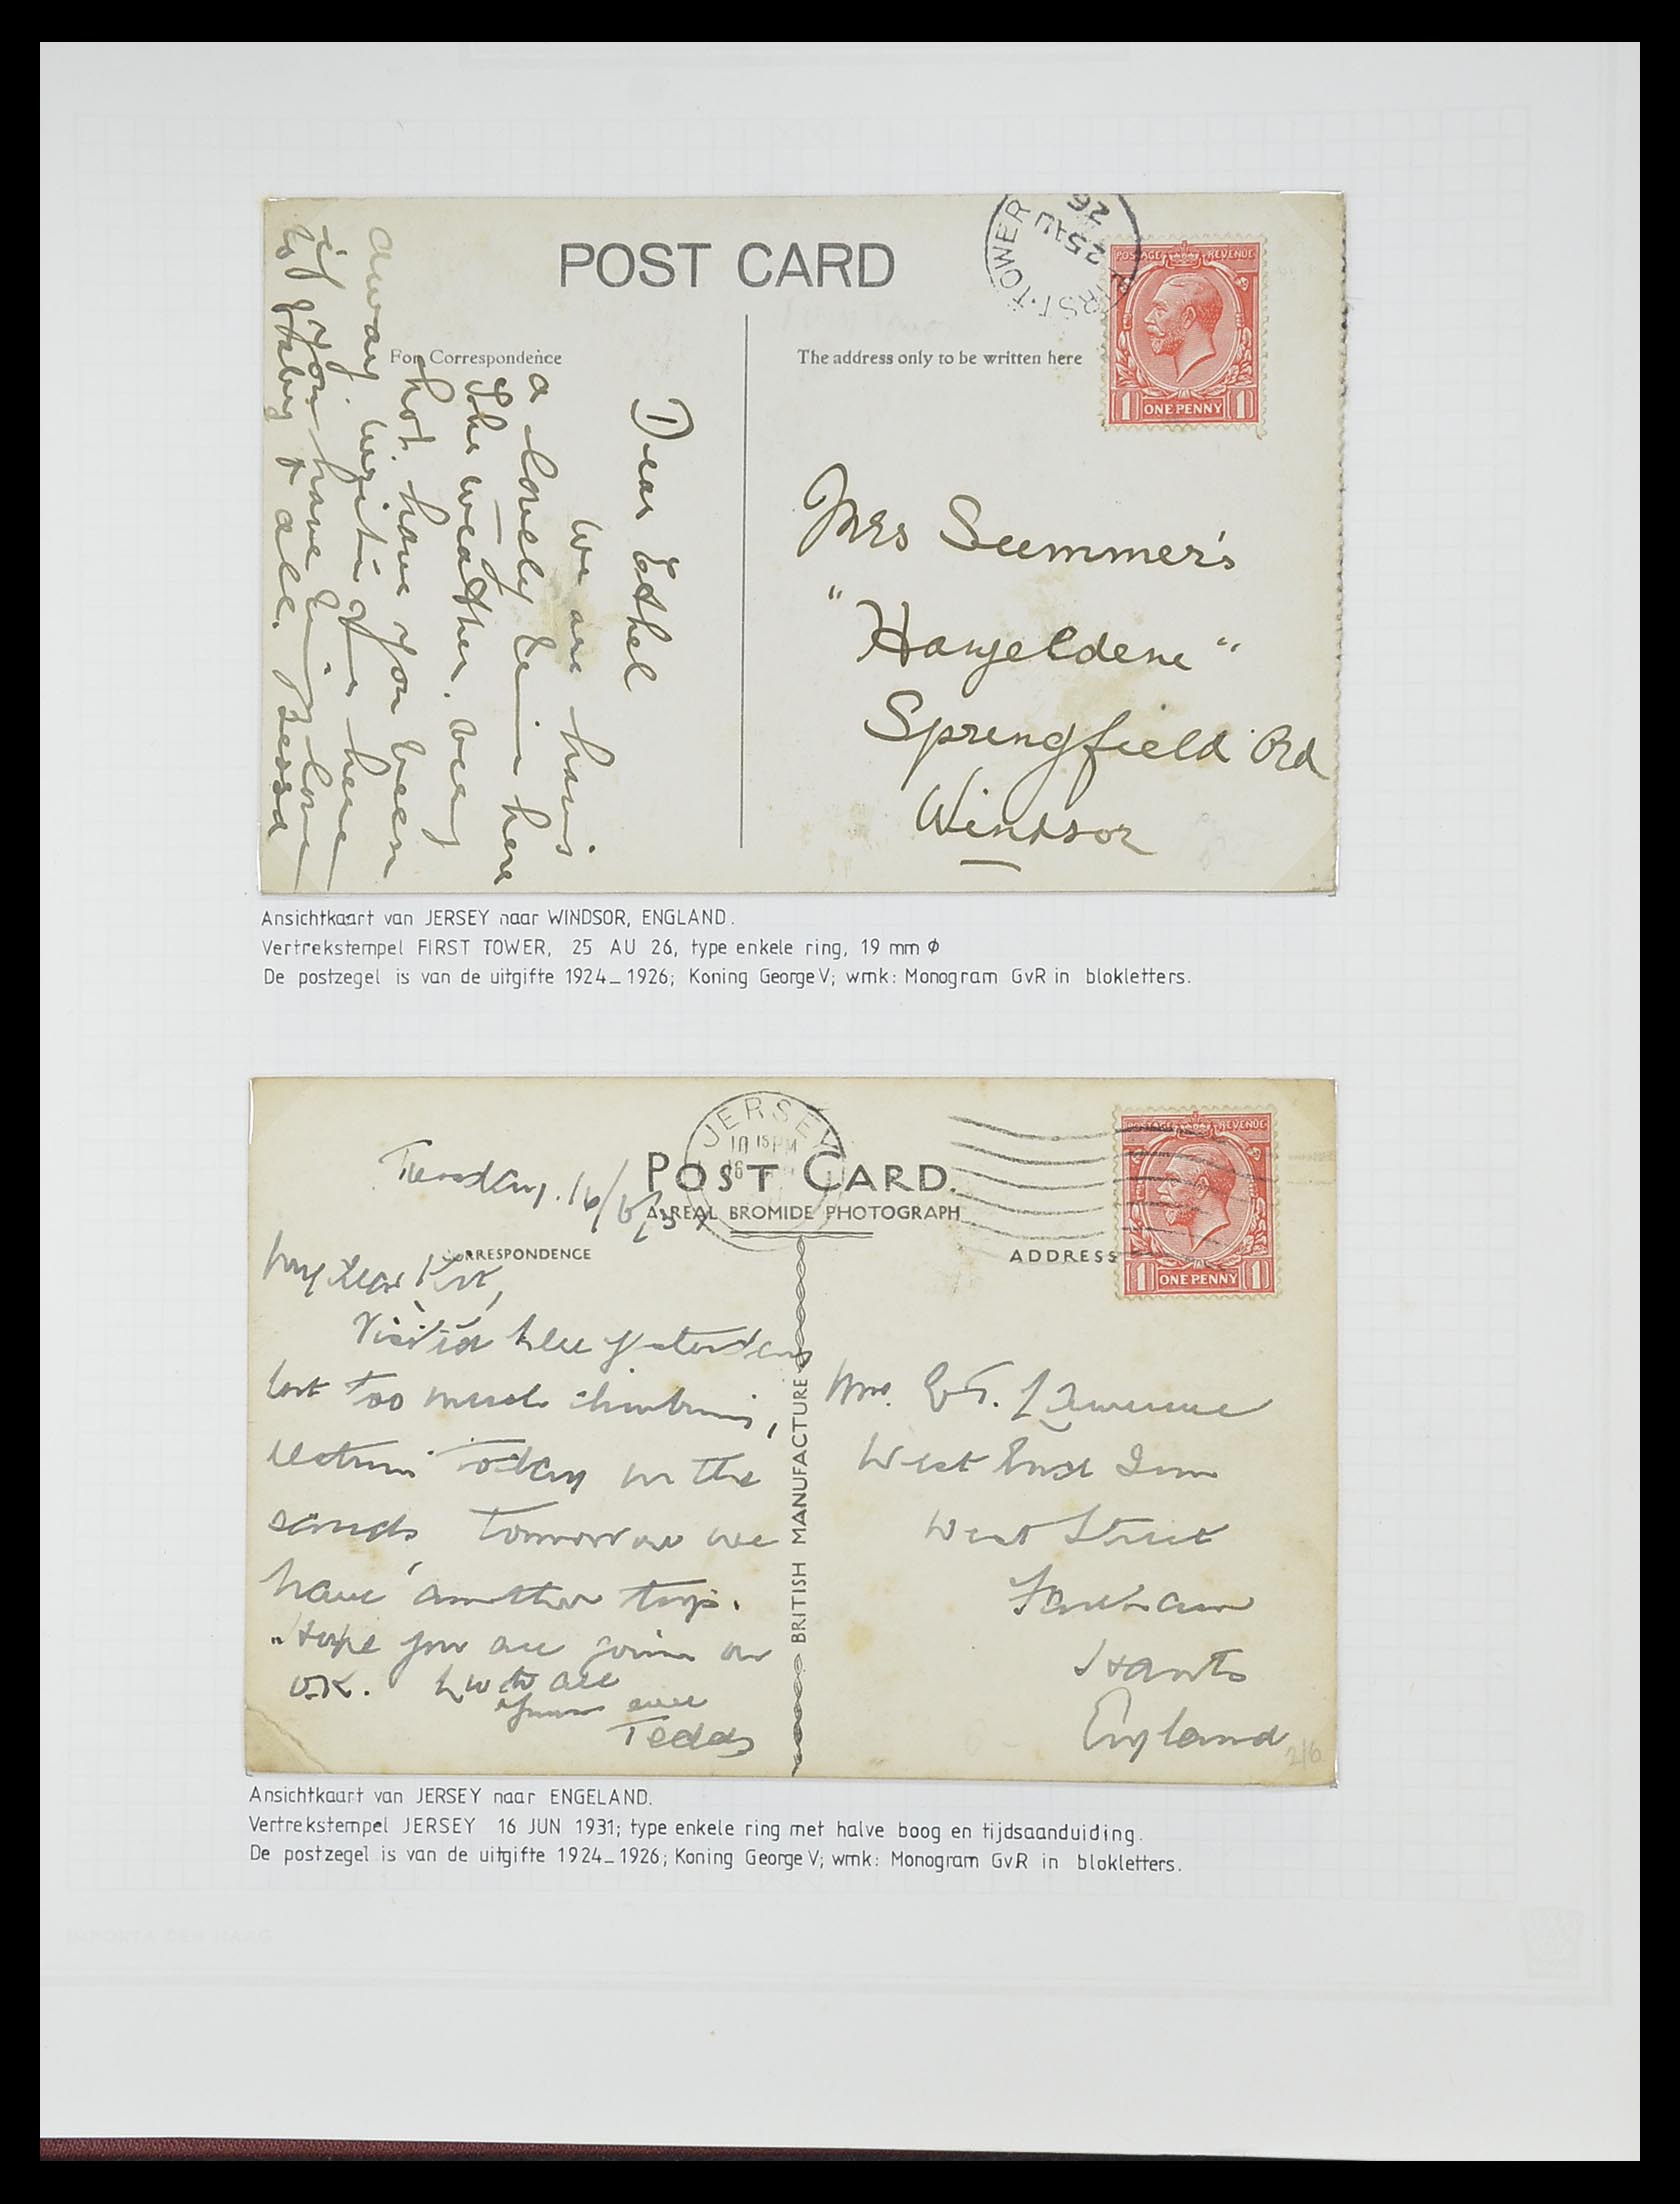 POST CARD
FIRST·TOWER
25 AU
26
POSTAGE REVENUE
1 ONE PENNY 1
For Correspondence
The address only to be written here
Dear Ethel
We are having
a lovely time here
the weather. very
hot. have you been
away write me here
if you have time love
to baby & all.
Mrs Summer's
Springfield Rd
Windsor
Ansichtkaart van JERSEY naar WINDSOR, ENGLAND.
Vertrekstempel FIRST TOWER, 25 AU 26, type enkele ring, 19 mm ϕ
De postzegel is van de uitgifte 1924_1926; Koning George V; wmk: Monogram GvR in blokletters.
JERSEY
10 15 PM
16
POST CARD.
A REAL BROMIDE PHOTOGRAPH
POSTAGE REVENUE
1 ONE PENNY 1
CORRESPONDENCE
ADDRESS
BRITISH MANUFACTURE
Tuesday. 16/6/31
My dear
Visited here yesterday
but too much climbing,
today on the
sands, tomorrow we
have another trip.
Hope you are going on
O.K.
yours ever
Teddy
Mrs.
West End Inn
West Street
Fareham
Hants
England
2/6
Ansichtkaart van JERSEY naar ENGELAND.
Vertrekstempel JERSEY 16 JUN 1931; type enkele ring met halve boog en tijdsaanduiding.
De postzegel is van de uitgifte 1924_1926; Koning George V; wmk: Monogram GvR in blokletters.
IMPORTA DEN HAAG